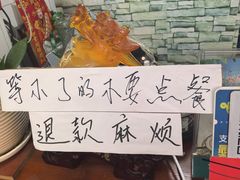 等不了的不要点餐
退款麻烦
支